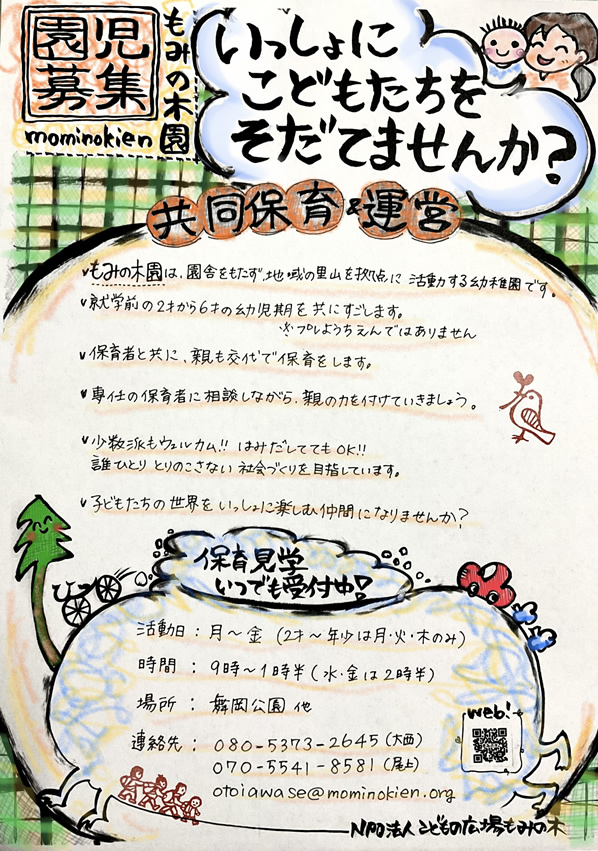 園児
募集
もみの木園
mominokien
いっしょに
こどもたちを
そだてませんか?
共同保育&運営
もみの木園は、園舎をもたず地域の里山を拠点に活動する幼稚園です。
就学前の2才から6才の幼児期を共にすごします。
※プレようちえんではありません
保育者と共に、親も交代で保育をします。
専任の保育者に相談しながら、親の力を付けていきましょう。
少数派もウェルカム!! はみだしてもOK!!
誰ひとりとりのこさない社会づくりを目指しています。
子どもたちの世界をいっしょに楽しむ仲間になりませんか?
保育見学
いつでも受付中!
活動日:月~金(2才~年少は月・火・木のみ)
時間:9時~1時半(水・金は2時半)
場所:舞岡公園 他
連絡先:080-5373-2645(大西)
070-5541-8581(尾上)
otoiawase@mominokien.org
web!
NPO法人こどもの広場もみの木